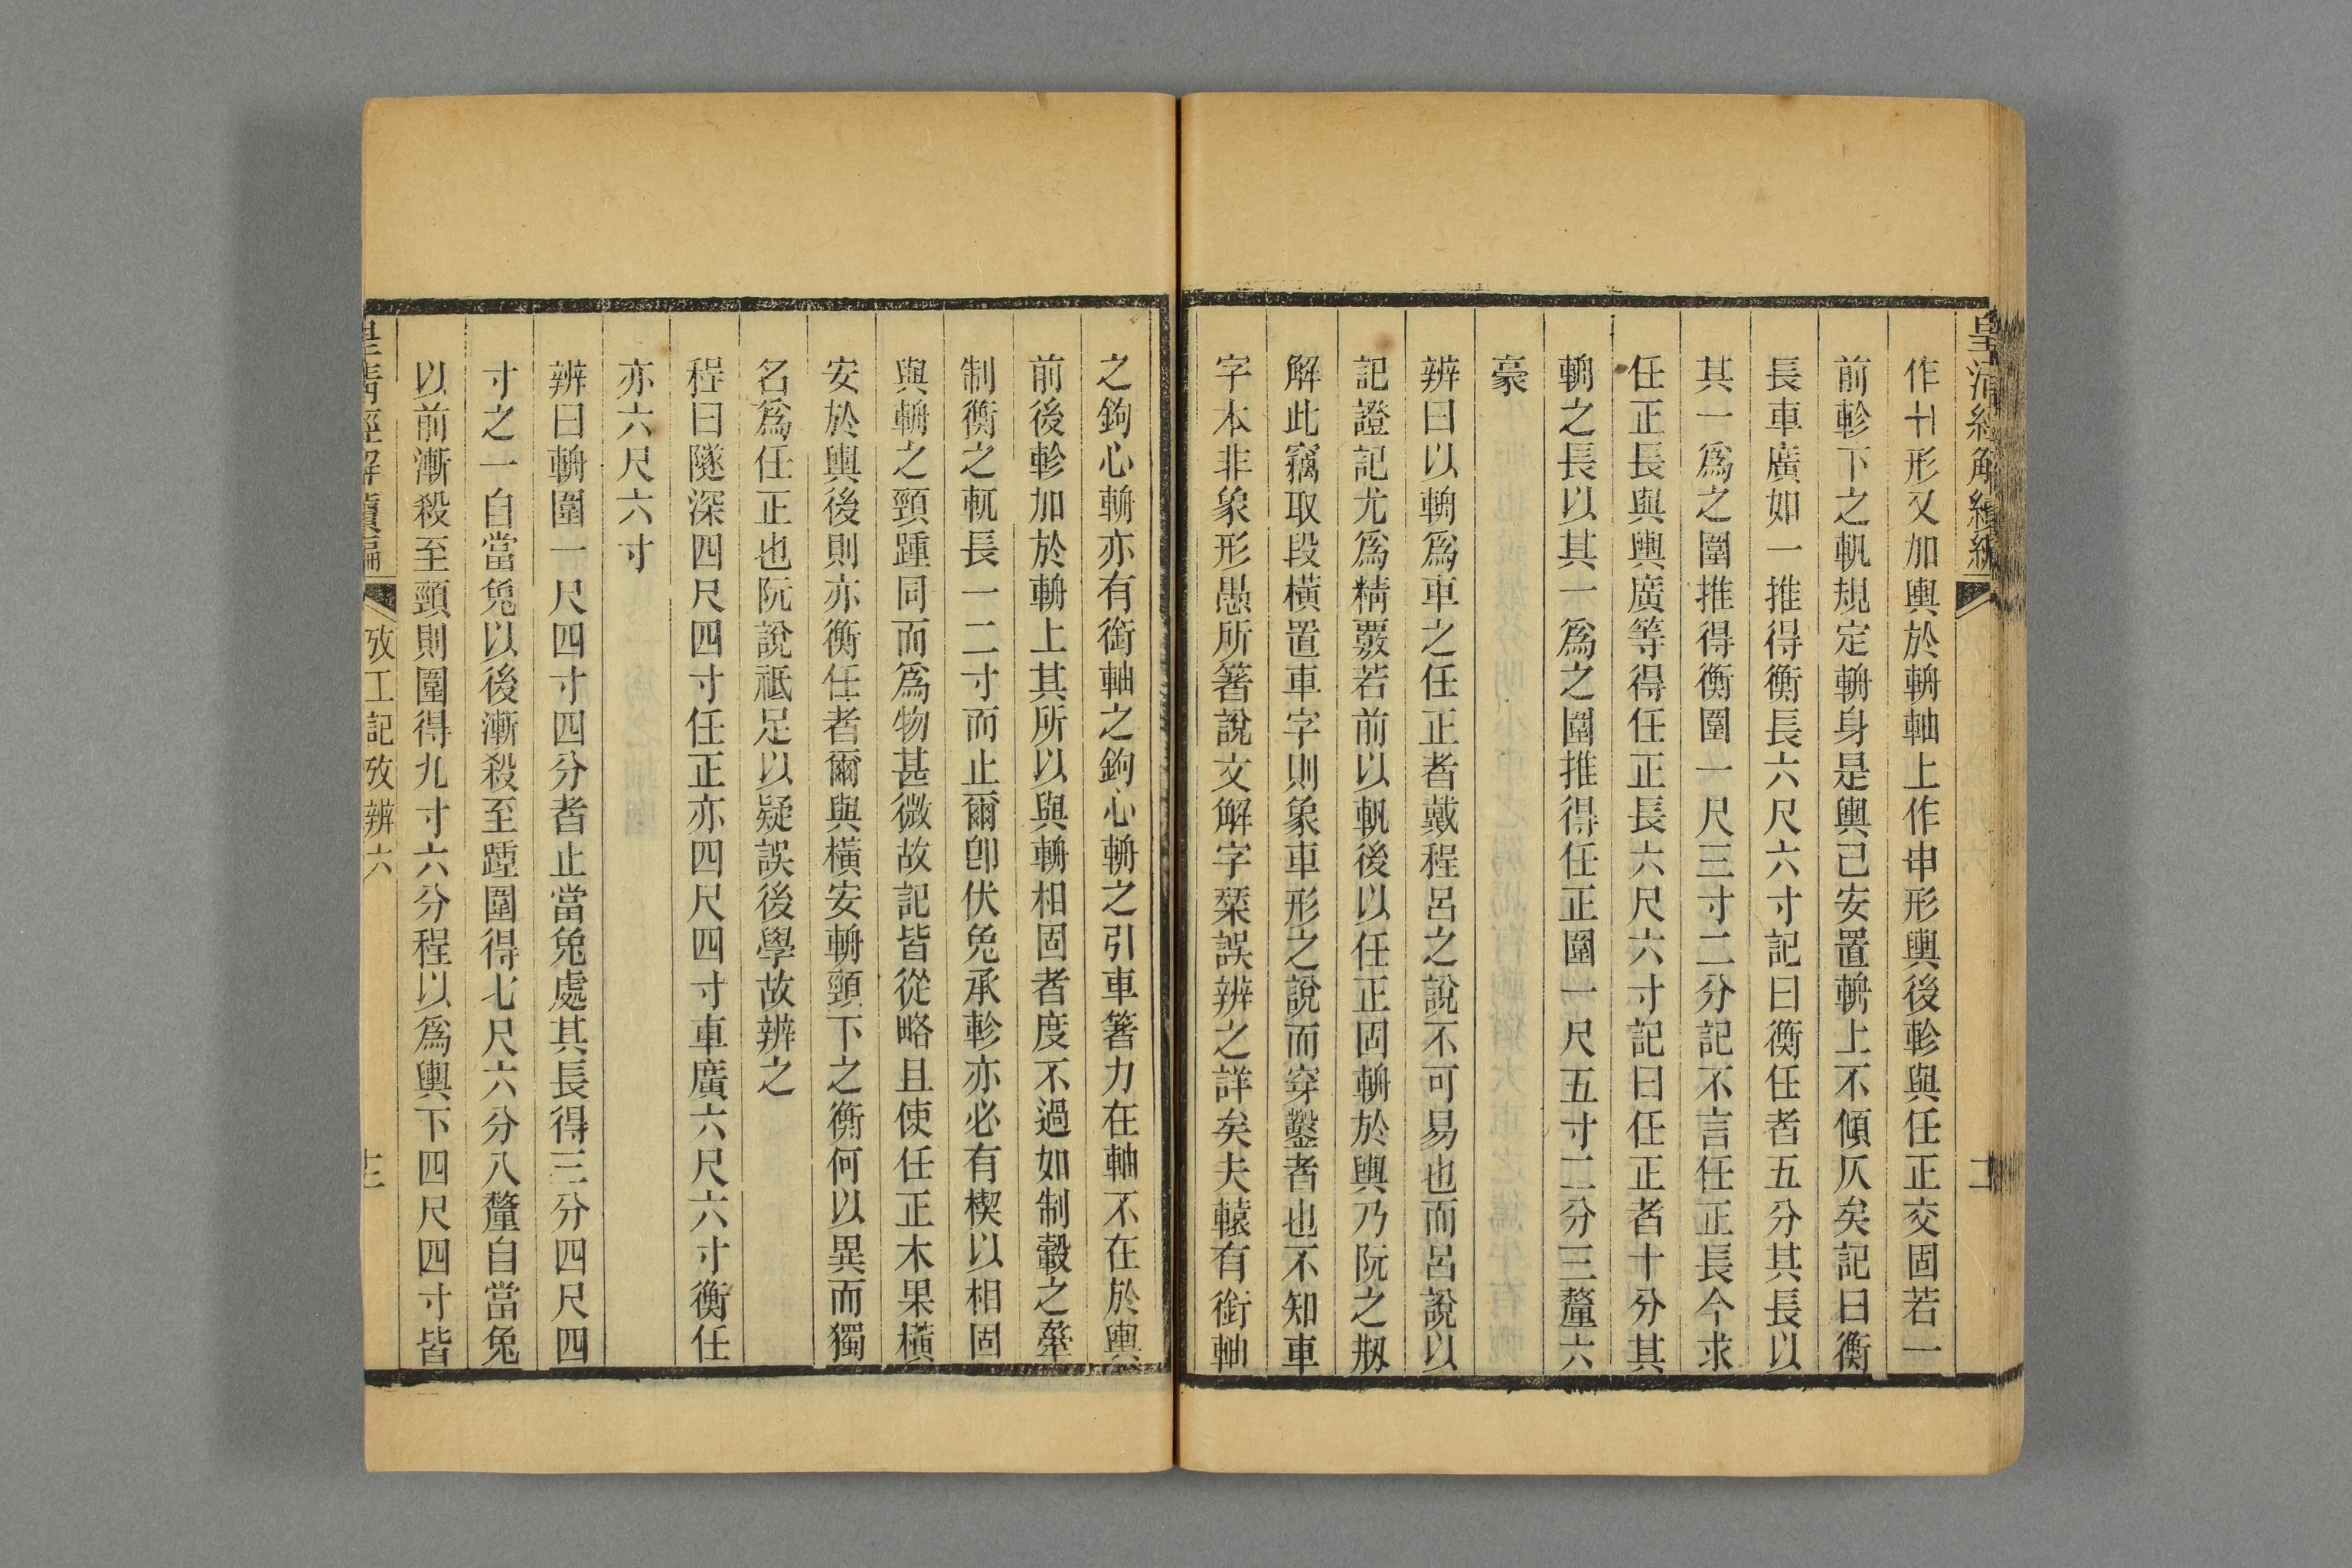 皇清經解續編
作十形又加輿於輈軸上作申形輿後軫與任正交固若一
前軫下之軓規定輈身是輿已安置輈上不傾仄矣記曰衡
長車廣如一推得衡長六尺六寸記曰衡任者五分其長以
其一爲之圍推得衡圍一尺三寸二分記不言任正長今求
任正長與輿廣等得任正長六尺六寸記曰任正者十分其
輈之長以其一爲之圍推得任正圍一尺五寸二分三釐六
豪
辨曰以輈爲車之任正者戴程呂之說不可易也而呂說以
記證記尤爲精覈若前以軓後以任正固輈於輿乃阮之剏
解此竊取段橫置車字則象車形之說而穿鑿者也不知車
字本非象形愚所箸說文解字琹誤辨之詳矣夫轅有銜軸
之鉤心輈亦有銜軸之鉤心輈之引車箸力在軸不在於輿
前後軫加於輈上其所以與輈相固者度不過如制轂之𨍷
制衡之軏長一二寸而止爾卽伏兔承軫亦必有楔以相固
與輈之頸踵同而爲物甚微故記皆從略且使任正木果橫
安於輿後則亦衡任者爾與橫安輈頸下之衡何以異而獨
名爲任正也阮說祇足以疑誤後學故辨之
程曰隧深四尺四寸任正亦四尺四寸車廣六尺六寸衡任
亦六尺六寸
辨曰輈圍一尺四寸四分者止當兔處其長得三分四尺四
寸之一自當兔以後漸殺至踵圍得七尺六分八釐自當兔
以前漸殺至頸則圍得九寸六分程以爲輿下四尺四寸皆
皇淸經解續編
攷工記攷辨六